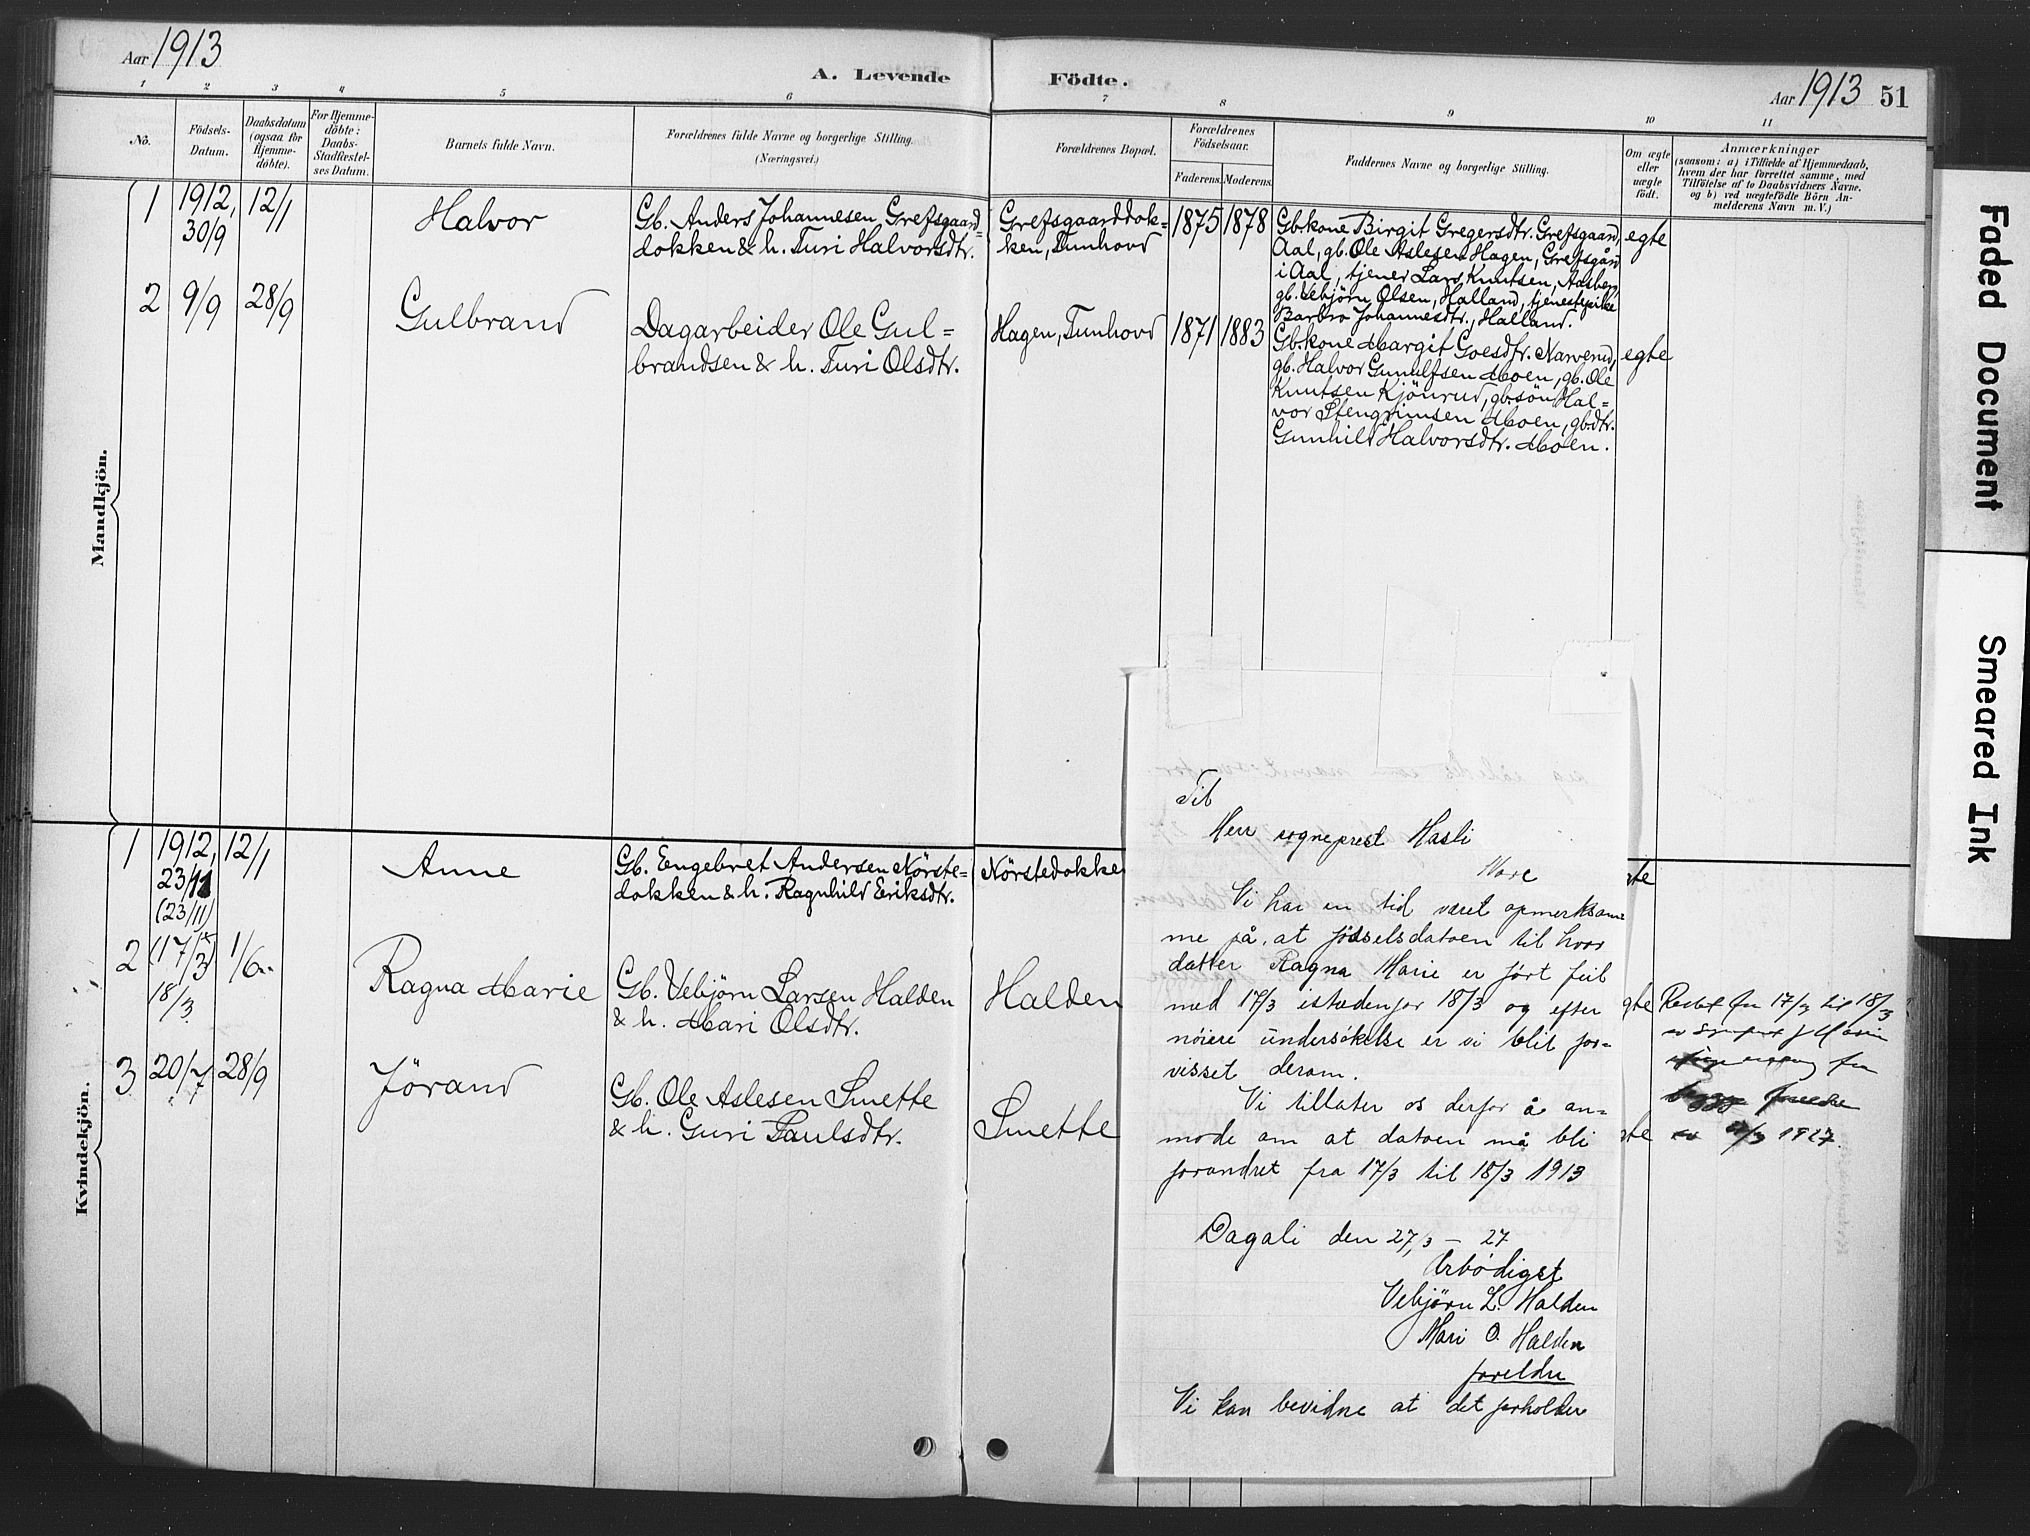 Aar 1913
A. Levende Födte.
Aar 1913 51
1 2 3 4 5 6 7 8 9 10 11
No.
Födsels-
Datum.
Daabsdatum
(ogsaa for
Hjemme-
döbte).
For Hjemme-
döbte:
Daabs-
Stadfæstel-
ses Datum.
Barnets fulde Navn.
Forældrenes fulde Navne og borgerlige Stilling.
(Næringsvei.)
Forældrenes Bopæl.
Forældrenes
Födselsaar.
Faderens. Moderens.
Faddernes Navne og borgerlige Stilling.
Om ægte
eller
uægte
födt.
Anmærkninger
(saasom: a) i Tilfælde af Hjemmedaab,
hvem der har forrettet samme, med
Tilföielse af to Daabsvidners Navne.
og b) ved uægtefödte Börn An-
melderens Navn m. V.)
Mandkjön.
1
1912,
30/9
12/1
Halvor
Gb. Anders Johannesen Grefsgaard=
dokken & h. Turi Halvorsdtr.
Grefsgaarddok=
ken, Tunhovd
1875
1878
Gb.kone Birgit Gregersdtr. Grefsgaard,
Aal, gb. Ole Aslesen Hagen, Grefsgård
i Aal, tjener Lars Knutsen, Aasberg,
gb. Vebjörn Olsen, Halland, tjenestepike
Barbro Johannesdtr., Halland.
egte
2
9/9
28/9
Gulbrand
Dagarbeider Ole Gul=
brandsen & h. Turi Olsdtr.
Hagen, Tunhovd
1871
1883
Gb.kone Margit Goesdtr. Narverud,
gb. Halvor Gunulfsen Moen, gb. Ole
Knutsen Kjönrud, gb.sön Hal=
vor Stengrimsen Moen, gb.dtr.
Gunhild Halvorsdtr. Moen.
egte
Kvindekjön.
1
1912,
23/11
(23/11)
12/1
Anne
Gb. Engebret Andersen Nörste=
dokken & h. Ragnhild Eriksdtr.
Nörstedokke
te
2
(17/3)
18/3
1/6
Ragna Marie
Gb. Vebjörn Larsen Halden
& h. Mari Olsdtr.
Halden
gte
fra 17/3 til 18/3
fra
1927.
3
20/7
28/9
Jörand
Gb. Ole Aslesen Smette
& h. Guri Paulsdtr.
Smette
te
Til
Herr sogneprest Hasli
Nore
Vi har en tid været opmerksom=
me på, at födselsdatoen til hvor
datter Ragna Marie er fört feil
med 17/3 istedenfor 18/3 og efter
nöiere undersökelse er vi blit for=
visset derom.
Vi tillater os derfor å an=
mode om at datoen må bli
forandret fra 17/3 til 18/3 1913
Dagali den 27/3 – 27
Ærbödigst
Vebjörn L. Halden
Mari O. Halden
foreldre
Vi kan bevidne at det forholder
Faded Document
Smeared Ink